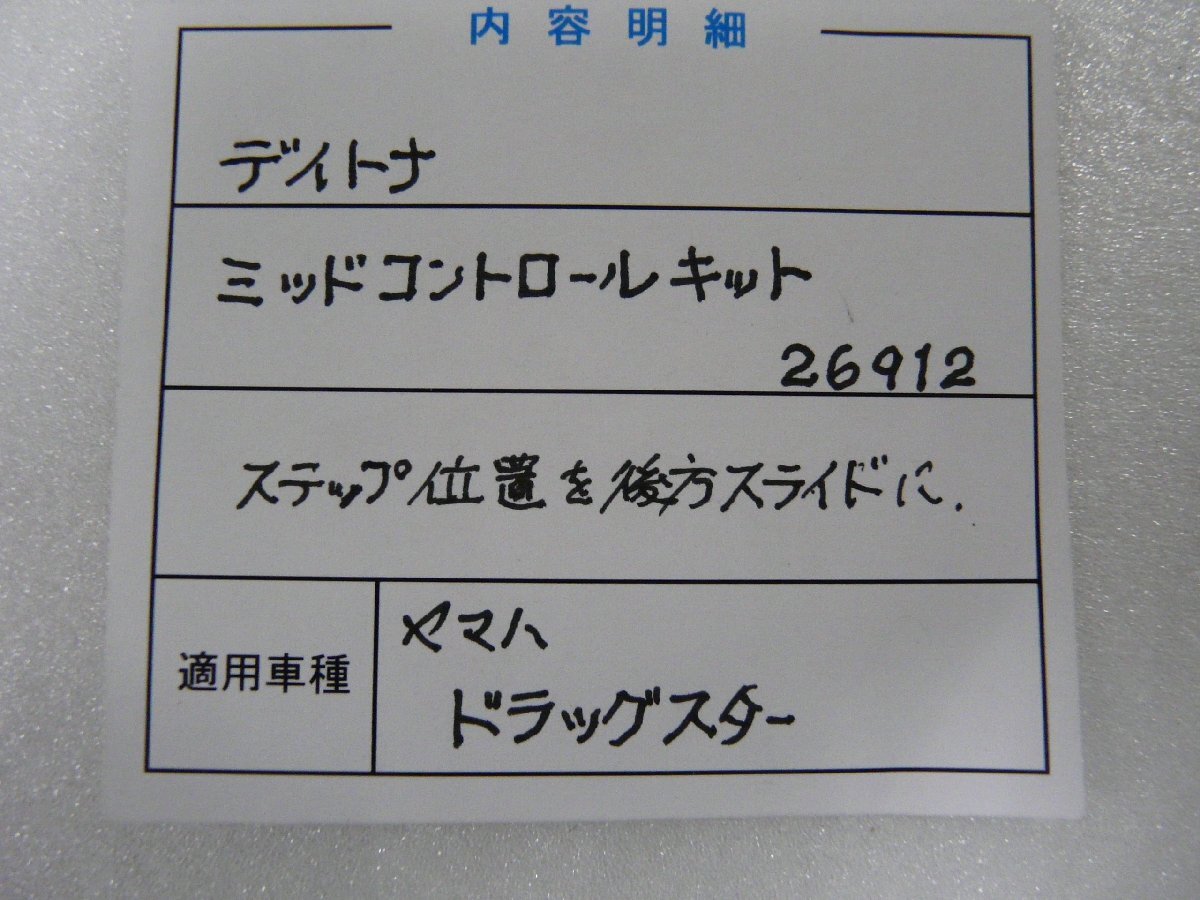 内容明細
デイトナ
ミッドコントロールキット
26912
ステップ位置を後方スライドに.
適用車種
ヤマハ
ドラッグスター